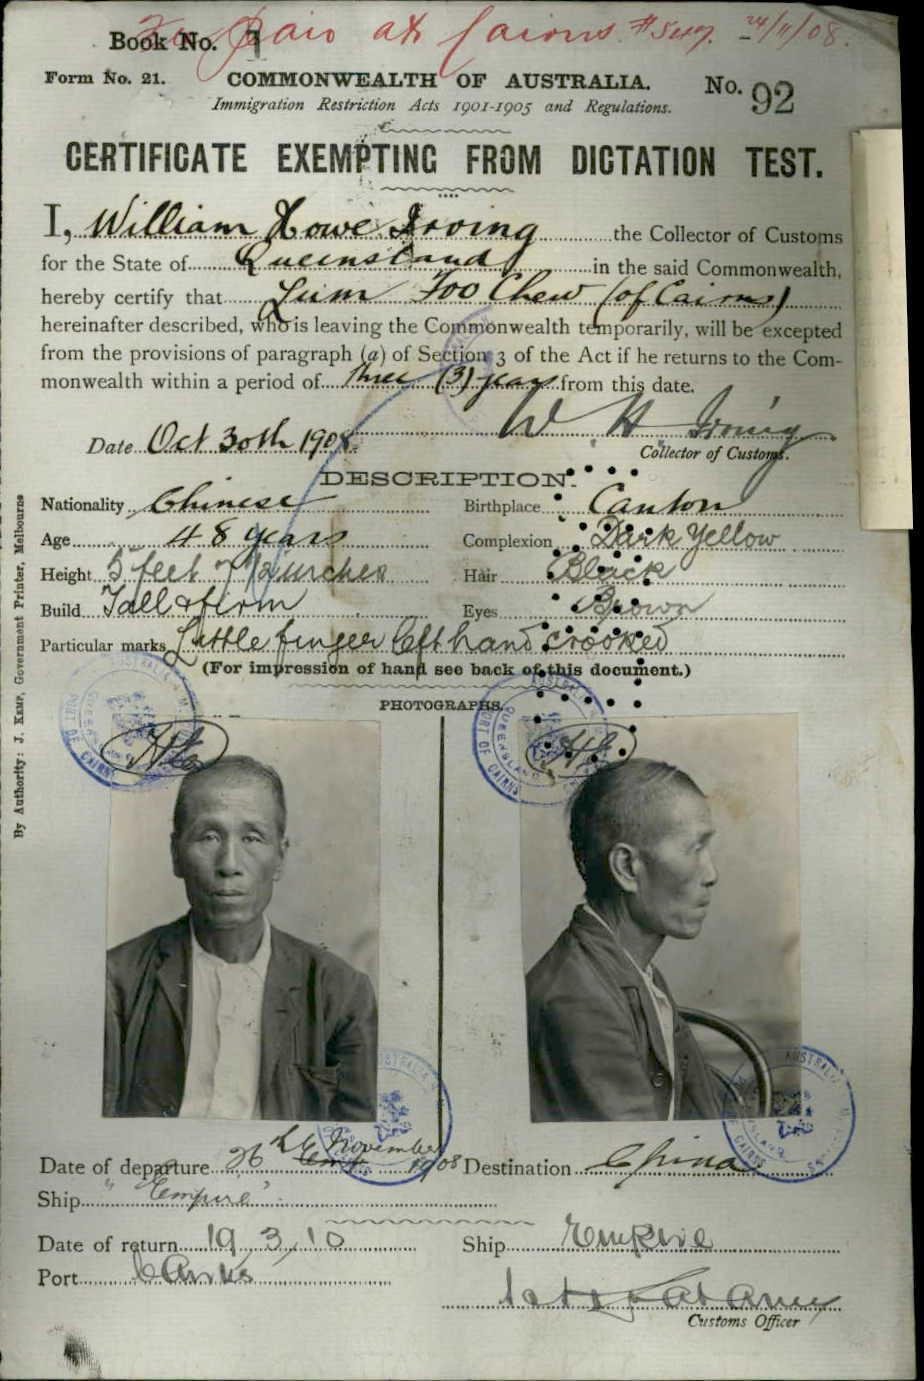 Paid at Cairns. 24/11/08.
Book No.
Form No. 21. COMMONWEALTH OF AUSTRALIA. No. 92
Immigration Restriction Acts 1901-1905 and Regulations.
CERTIFICATE EXEMPTING FROM DICTATION TEST.
I, William Howe Irving the Collector of Customs
for the State of Queensland in the said Commonwealth,
hereby certify that Lum Foo Chew (of Cairns)
hereinafter described, who is leaving the Commonwealth temporarily, will be excepted
from the provisions of paragraph (a) of Section 3 of the Act if he returns to the Com-
monwealth within a period of three (3) years from this date.
W H Irving
Date Oct 30th 1908.
Collector of Customs.
DESCRIPTION.
Nationality Chinese Birthplace Canton
Age 48 years Complexion Dark Yellow
Height 5 feet 7½ inches Hair Black
Build Tall & firm Eyes Brown
Particular marks Little finger left hand crooked
(For impression of hand see back of this document.)
PHOTOGRAPHS.
PORT OF CAIRNS
QUEENSLAND
AUSTRALIA
PORT OF CAIRNS
QUEENSLAND
AUSTRALIA
By Authority: J. KEMP, Government Printer, Melbourne
Date of departure 26th November 1908 Destination China
Ship "Empire"
Date of return 19.3.10 Ship Empire
Port Cairns
Customs Officer